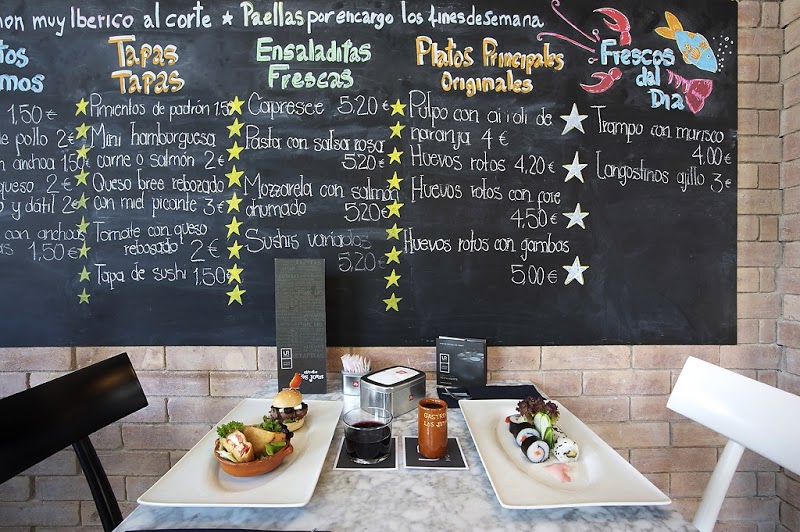 mon muy Iberico al corte ★ Paellas por encargo los fines de semana
Tapas
Tapas
Pimientos de padrón 1,50
Mini hamburguesa
carne o salmón 2€
Queso bree rebozado
con miel picante 3€
Tomate con queso
rebosado 2€
Tapa de sushi 1,50€
1,50€
de pollo 2€
anchoa 1,50
queso 2€
y dátil 2€
con anchoas
1,50€
Ensaladitas
Frescas
Capresee 5,20
Pasta con salsa rosa
5,20
Mozzarela con salmón
ahumado 5,20
Sushis variados
5,20€
Platos Principales
Originales
Pulpo con ai i oli de
naranja 4€
Huevos rotos 4,20€
Huevos rotos con foie
4,50€
Huevos rotos con gambas
5,00€
Frescos
del
Dia
Trampo con marisco
4,00€
Langostinos ajillo 3€